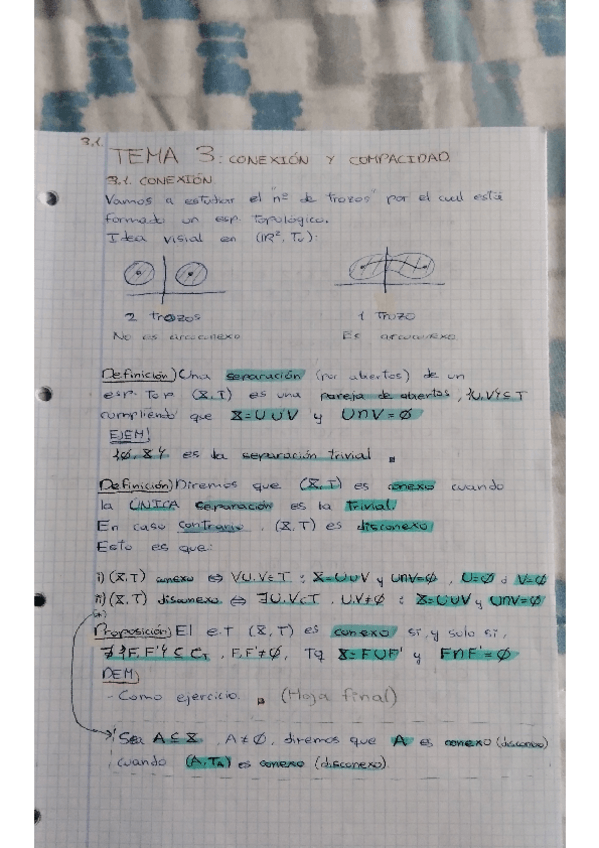 3.1.
TEMA 3: CONEXIÓN Y COMPACIDAD.
3.1. CONEXIÓN.
Vamos a estudiar el "nº de trozos" por el cual está
formado un esp. topológico.
Idea visial en (ℝ², Tᵤ):
2 trozos
1 Trozo
No es arcoconexo
Es arcoconexo
Definición) Una separación (por abiertos) de un
esp. Top (X,T) es una pareja de abiertos, {U,V} ⊆ T
cumpliendo que X=U∪V y U∩V=∅
EJEM)
{∅, X} es la separación trivial
Definición) Diremos que (X,T) es conexo cuando
la ÚNICA separación es la trivial
En caso contrario, (X,T) es disconexo
Esto es que:
i) (X,T) conexo ⇔ ∀U,V∈T : X=U∪V y U∩V=∅, U=∅ ó V=∅
ii) (X,T) disconexo ⇔ ∃U,V∈T, U,V≠∅ : X=U∪V y U∩V=∅
Proposición) El e.T (X,T) es conexo si, y solo si,
∄{F,F'} ⊆ C_T, F,F'≠∅, Tq X=F∪F' y F∩F'=∅
DEM)
- Como ejercicio. (Hoja final)
Sea A⊆X, A≠∅, diremos que A es conexo (disconexo)
cuando (A,T_A) es conexo (disconexo)